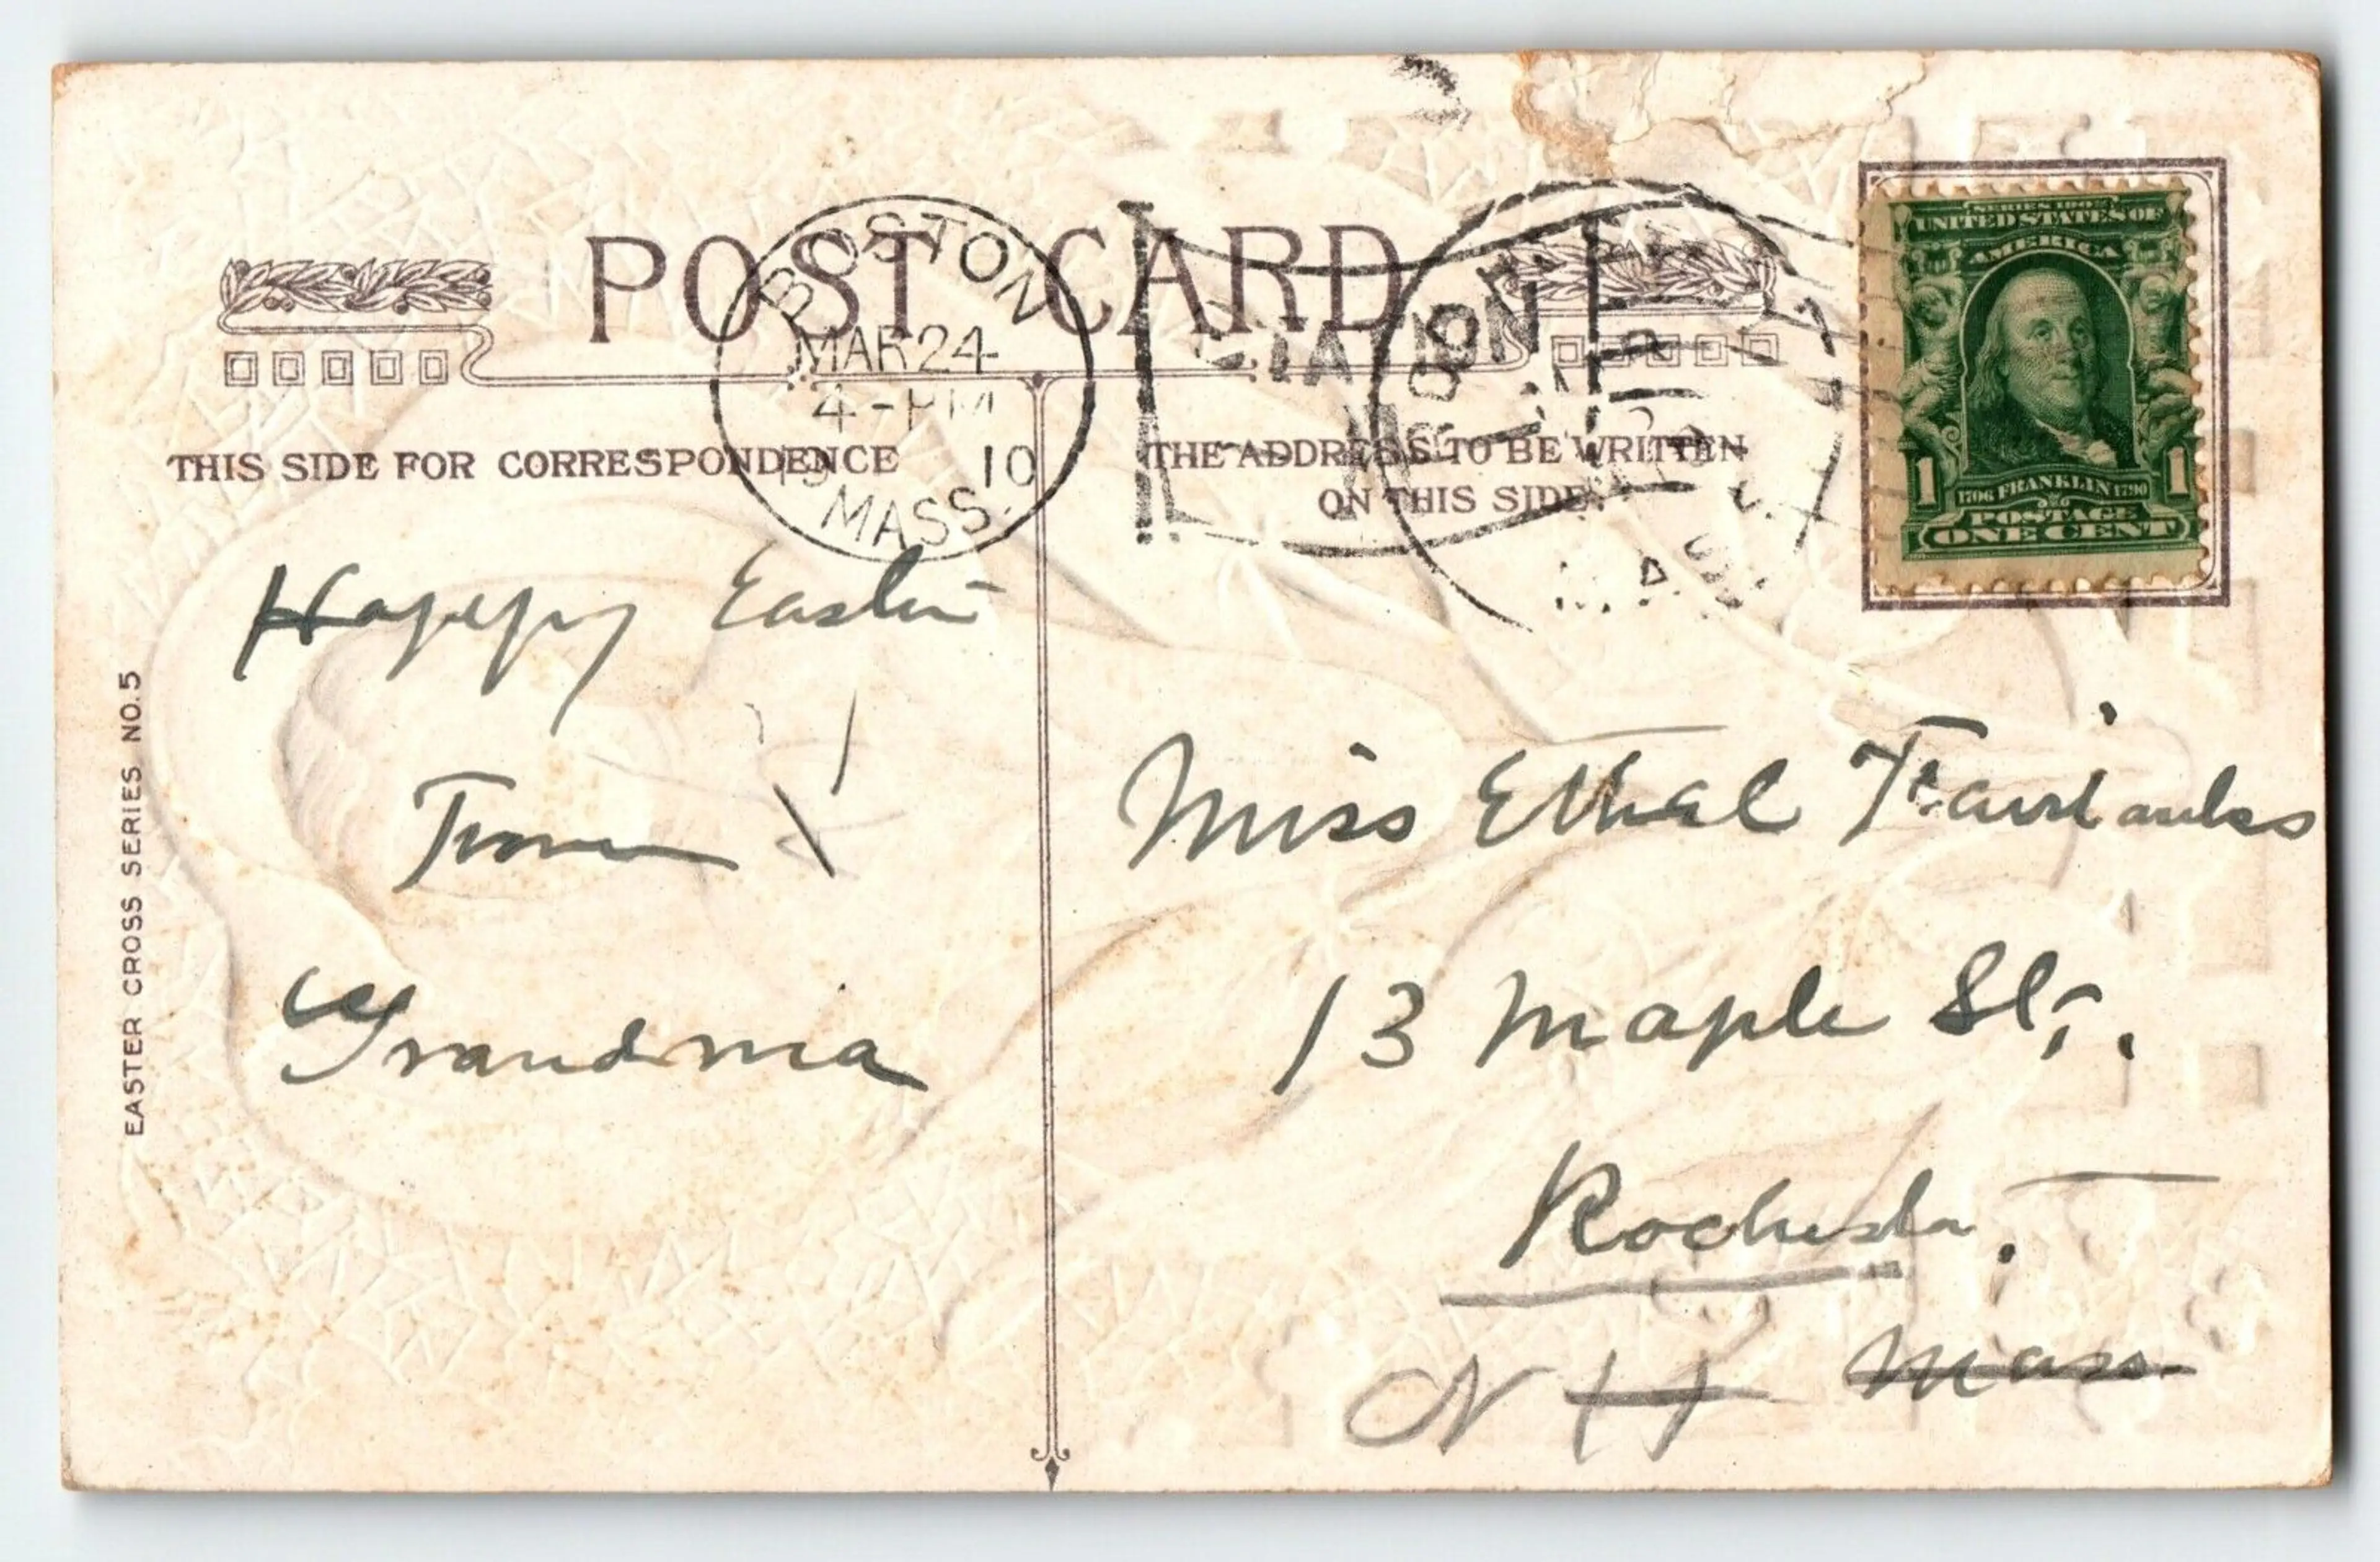 POST CARD
BOSTON
MAR 24
4-PM
19 10
MASS.
THIS SIDE FOR CORRESPONDENCE
THE ADDRESS TO BE WRITTEN
ON THIS SIDE.
SERIES 1902
UNITED STATES OF
AMERICA
1 1706 FRANKLIN 1790 1
POSTAGE
ONE CENT
EASTER CROSS SERIES NO. 5
Happy Easter
From
Grandma
Miss Ethel Fairbanks
13 Maple St.
Rochester.
Mass.
N H